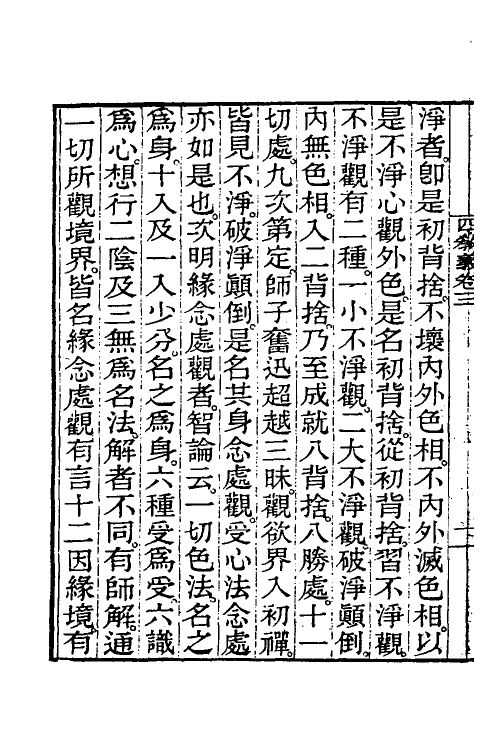 四教義卷三
淨者。卽是初背捨。不壞內外色相。不內外滅色相。以
是不淨心觀外色。是名初背捨。從初背捨。習不淨觀。
不淨觀有二種。一小不淨觀。二大不淨觀。破淨顛倒。
內無色相。入二背捨。乃至成就八背捨。八勝處。十一
切處。九次第定。師子奮迅超越三昧。觀欲界入初禪。
皆見不淨。破淨顛倒。是名其身念處觀。受心法念處
亦如是也。次明緣念處觀者。智論云。一切色法。名之
爲身。十入及一入少分。名之爲身。六種受爲受。六識
爲心。想行二陰及三無爲名法。解者不同。有師解。通
一切所觀境界。皆名緣念處觀。有言十二因緣境。有